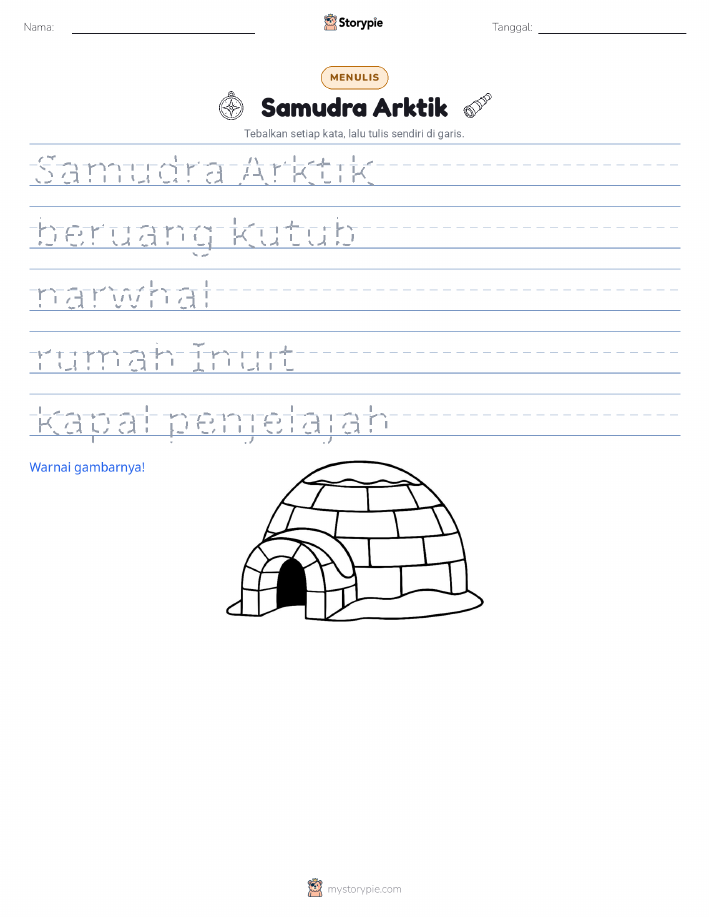 Nama:
Storypie
Tanggal:
MENULIS
Samudra Arktik
Tebalkan setiap kata, lalu tulis sendiri di garis.
Samudra Arktik
beruang kutub
narwhal
rumah Inuit
kapal penjelajah
Warnai gambarnya!
mystorypie.com